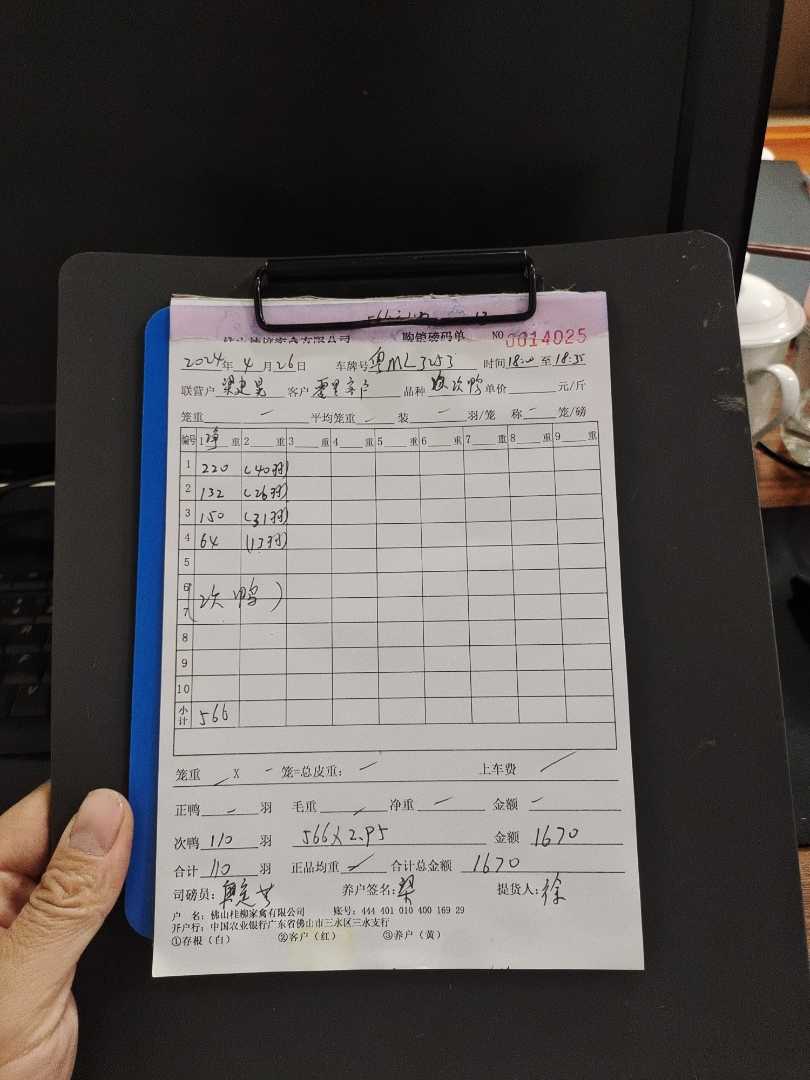 购销磅码单 NO 0014025
2024年4月26日 车牌号 粤ML3253 时间 18:20 至 18:35
联营户 客户 品种 次鸭 单价 元/斤
笼重 - 平均笼重 - 装 - 羽/笼 称 - 笼/磅
编号 1 净 重 2 重 3 重 4 重 5 重 6 重 7 重 8 重 9 重
1 220 (40羽)
2 132 (26羽)
3 150 (31羽)
4 64 (13羽)
5
6
7 (次鸭)
8
9
10
小计 566
笼重 - X - 笼=总皮重: - 上车费 /
正鸭 - 羽 毛重 - 净重 - 金额 -
次鸭 110 羽 566×2.95 金额 1670
合计 110 羽 正品均重 - 合计总金额 1670
司磅员: 养户签名: 梁 提货人: 徐
户 名: 佛山桂柳家禽有限公司 账号: 444 401 010 400 169 29
开户行: 中国农业银行广东省佛山市三水区三水支行
①存根(白) ②客户(红) ③养户(黄)